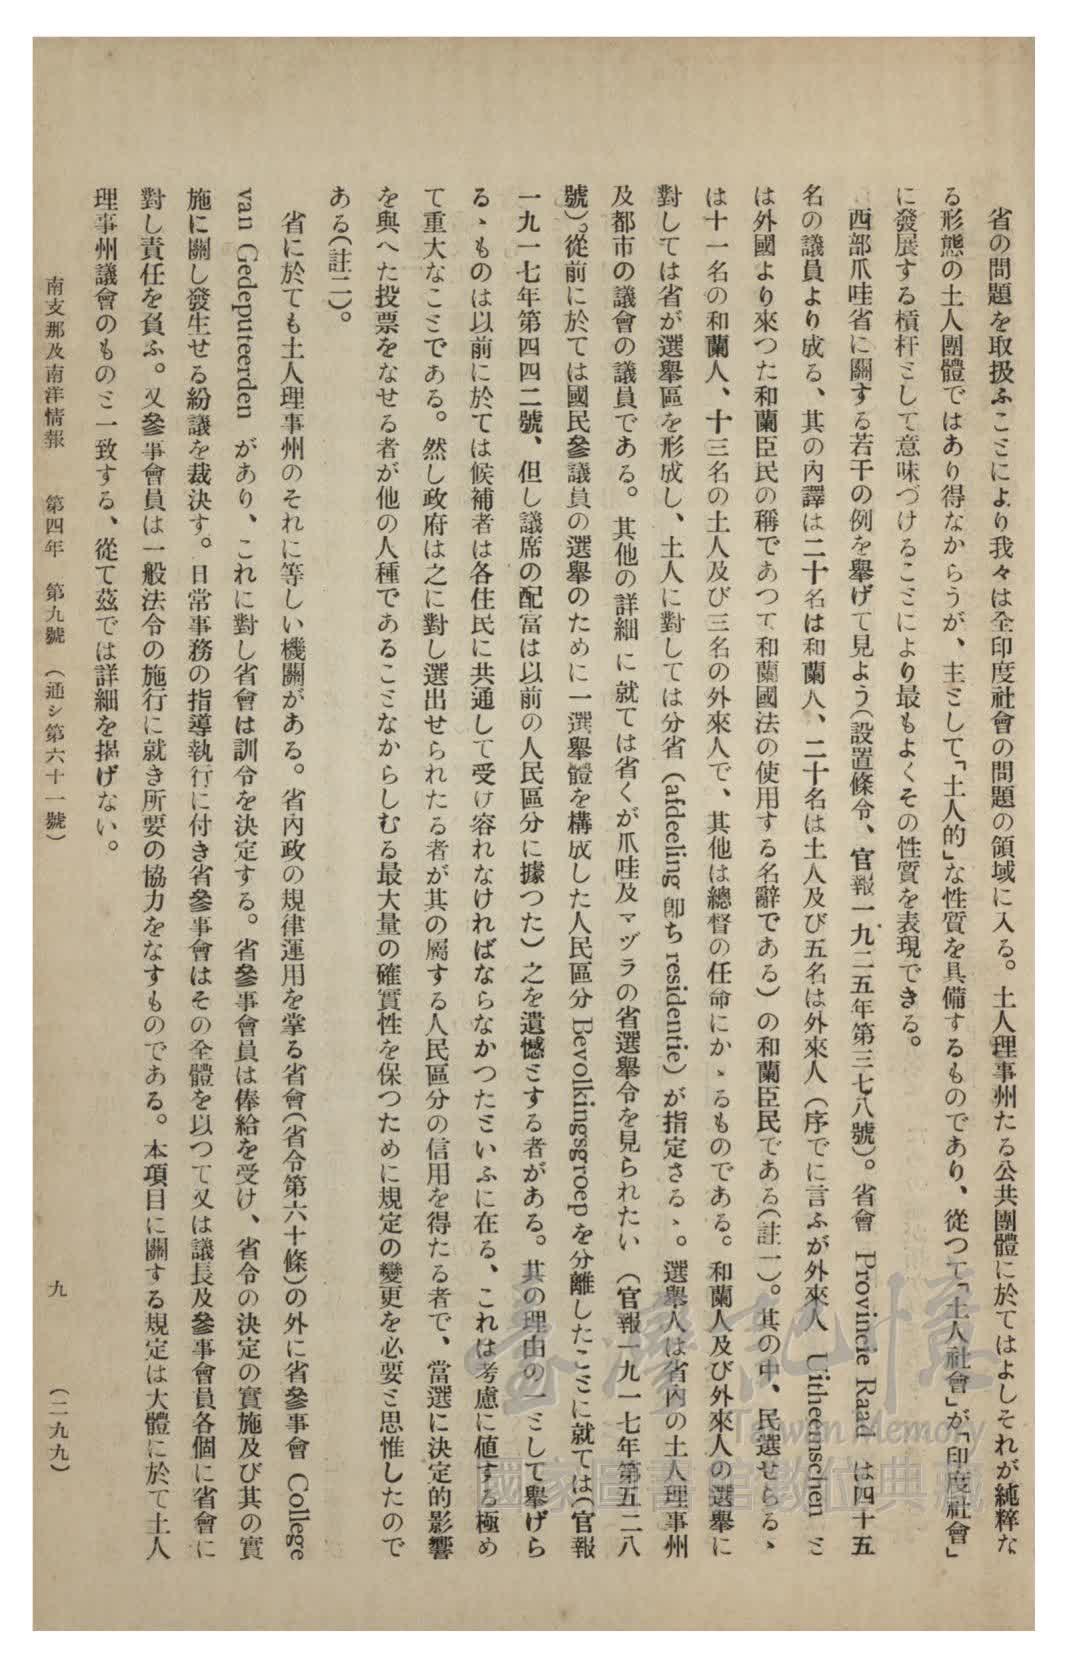 省の問題を取扱ふことにより我々は全印度社會の問題の領域に入る。土人理事州たる公共團體に於てはよしそれが純粹な
る形態の土人團體ではあり得なからうが、主として「土人的」な性質を具備するものであり、從つて「土人社會」が「印度社會」
に發展する槓杆として意味づけることにより最もよくその性質を表現できる。
西部爪哇省に關する若干の例を擧げて見よう(設置條令、官報一九二五年第三七八號)。省會 Provincie Raad は四十五
名の議員より成る、其の內譯は二十名は和蘭人、二十名は土人及び五名は外來人(序でに言ふが外來人 Uitheemschen と
は外國より來つた和蘭臣民の稱であつて和蘭國法の使用する名辭である)の和蘭臣民である(註一)。其の中、民選せらるゝ
は十一名の和蘭人、十三名の土人及び三名の外來人で、其他は總督の任命にかゝるものである。和蘭人及び外來人の選擧に
對しては省が選擧區を形成し、土人に對しては分省(afdeeling 卽ち residentie)が指定さるゝ。選擧人は省內の土人理事州
及都市の議會の議員である。其他の詳細に就ては省くが爪哇及マヅラの省選擧令を見られたい(官報一九一七年第五二八
號)。從前に於ては國民參議員の選擧のために一選擧體を構成した人民區分 Bevolkingsgroep を分離したことに就ては(官報
一九一七年第四四二號、但し議席の配當は以前の人民區分に據つた)之を遺憾とする者がある。其の理由の一として擧げら
るゝものは以前に於ては候補者は各住民に共通して受け容れなければならなかつたといふに在る、これは考慮に値する極め
て重大なことである。然し政府は之に對し選出せられたる者が其の屬する人民區分の信用を得たる者で、當選に決定的影響
を與へた投票をなせる者が他の人種であることなからしむる最大量の確實性を保つために規定の變更を必要と思惟したので
ある(註二)。
省に於ても土人理事州のそれに等しい機關がある。省內政の規律運用を掌る省會(省令第六十條)の外に省參事會 College
van Gedeputeerden があり、これに對し省會は訓令を決定する。省參事會員は俸給を受け、省令の決定の實施及び其の實
施に關し發生せる紛議を裁決す。日常事務の指導執行に付き省參事會はその全體を以つて又は議長及參事會員各個に省會に
對し責任を負ふ。又參事會員は一般法令の施行に就き所要の協力をなすものである。本項目に關する規定は大體に於て土人
理事州議會のものと一致する、從て茲では詳細を揭げない。
南支那及南洋情報 第四年 第九號 (通シ第六十一號) 九 (二九九)
臺灣記憶
Taiwan Memory
國家圖書館數位典藏